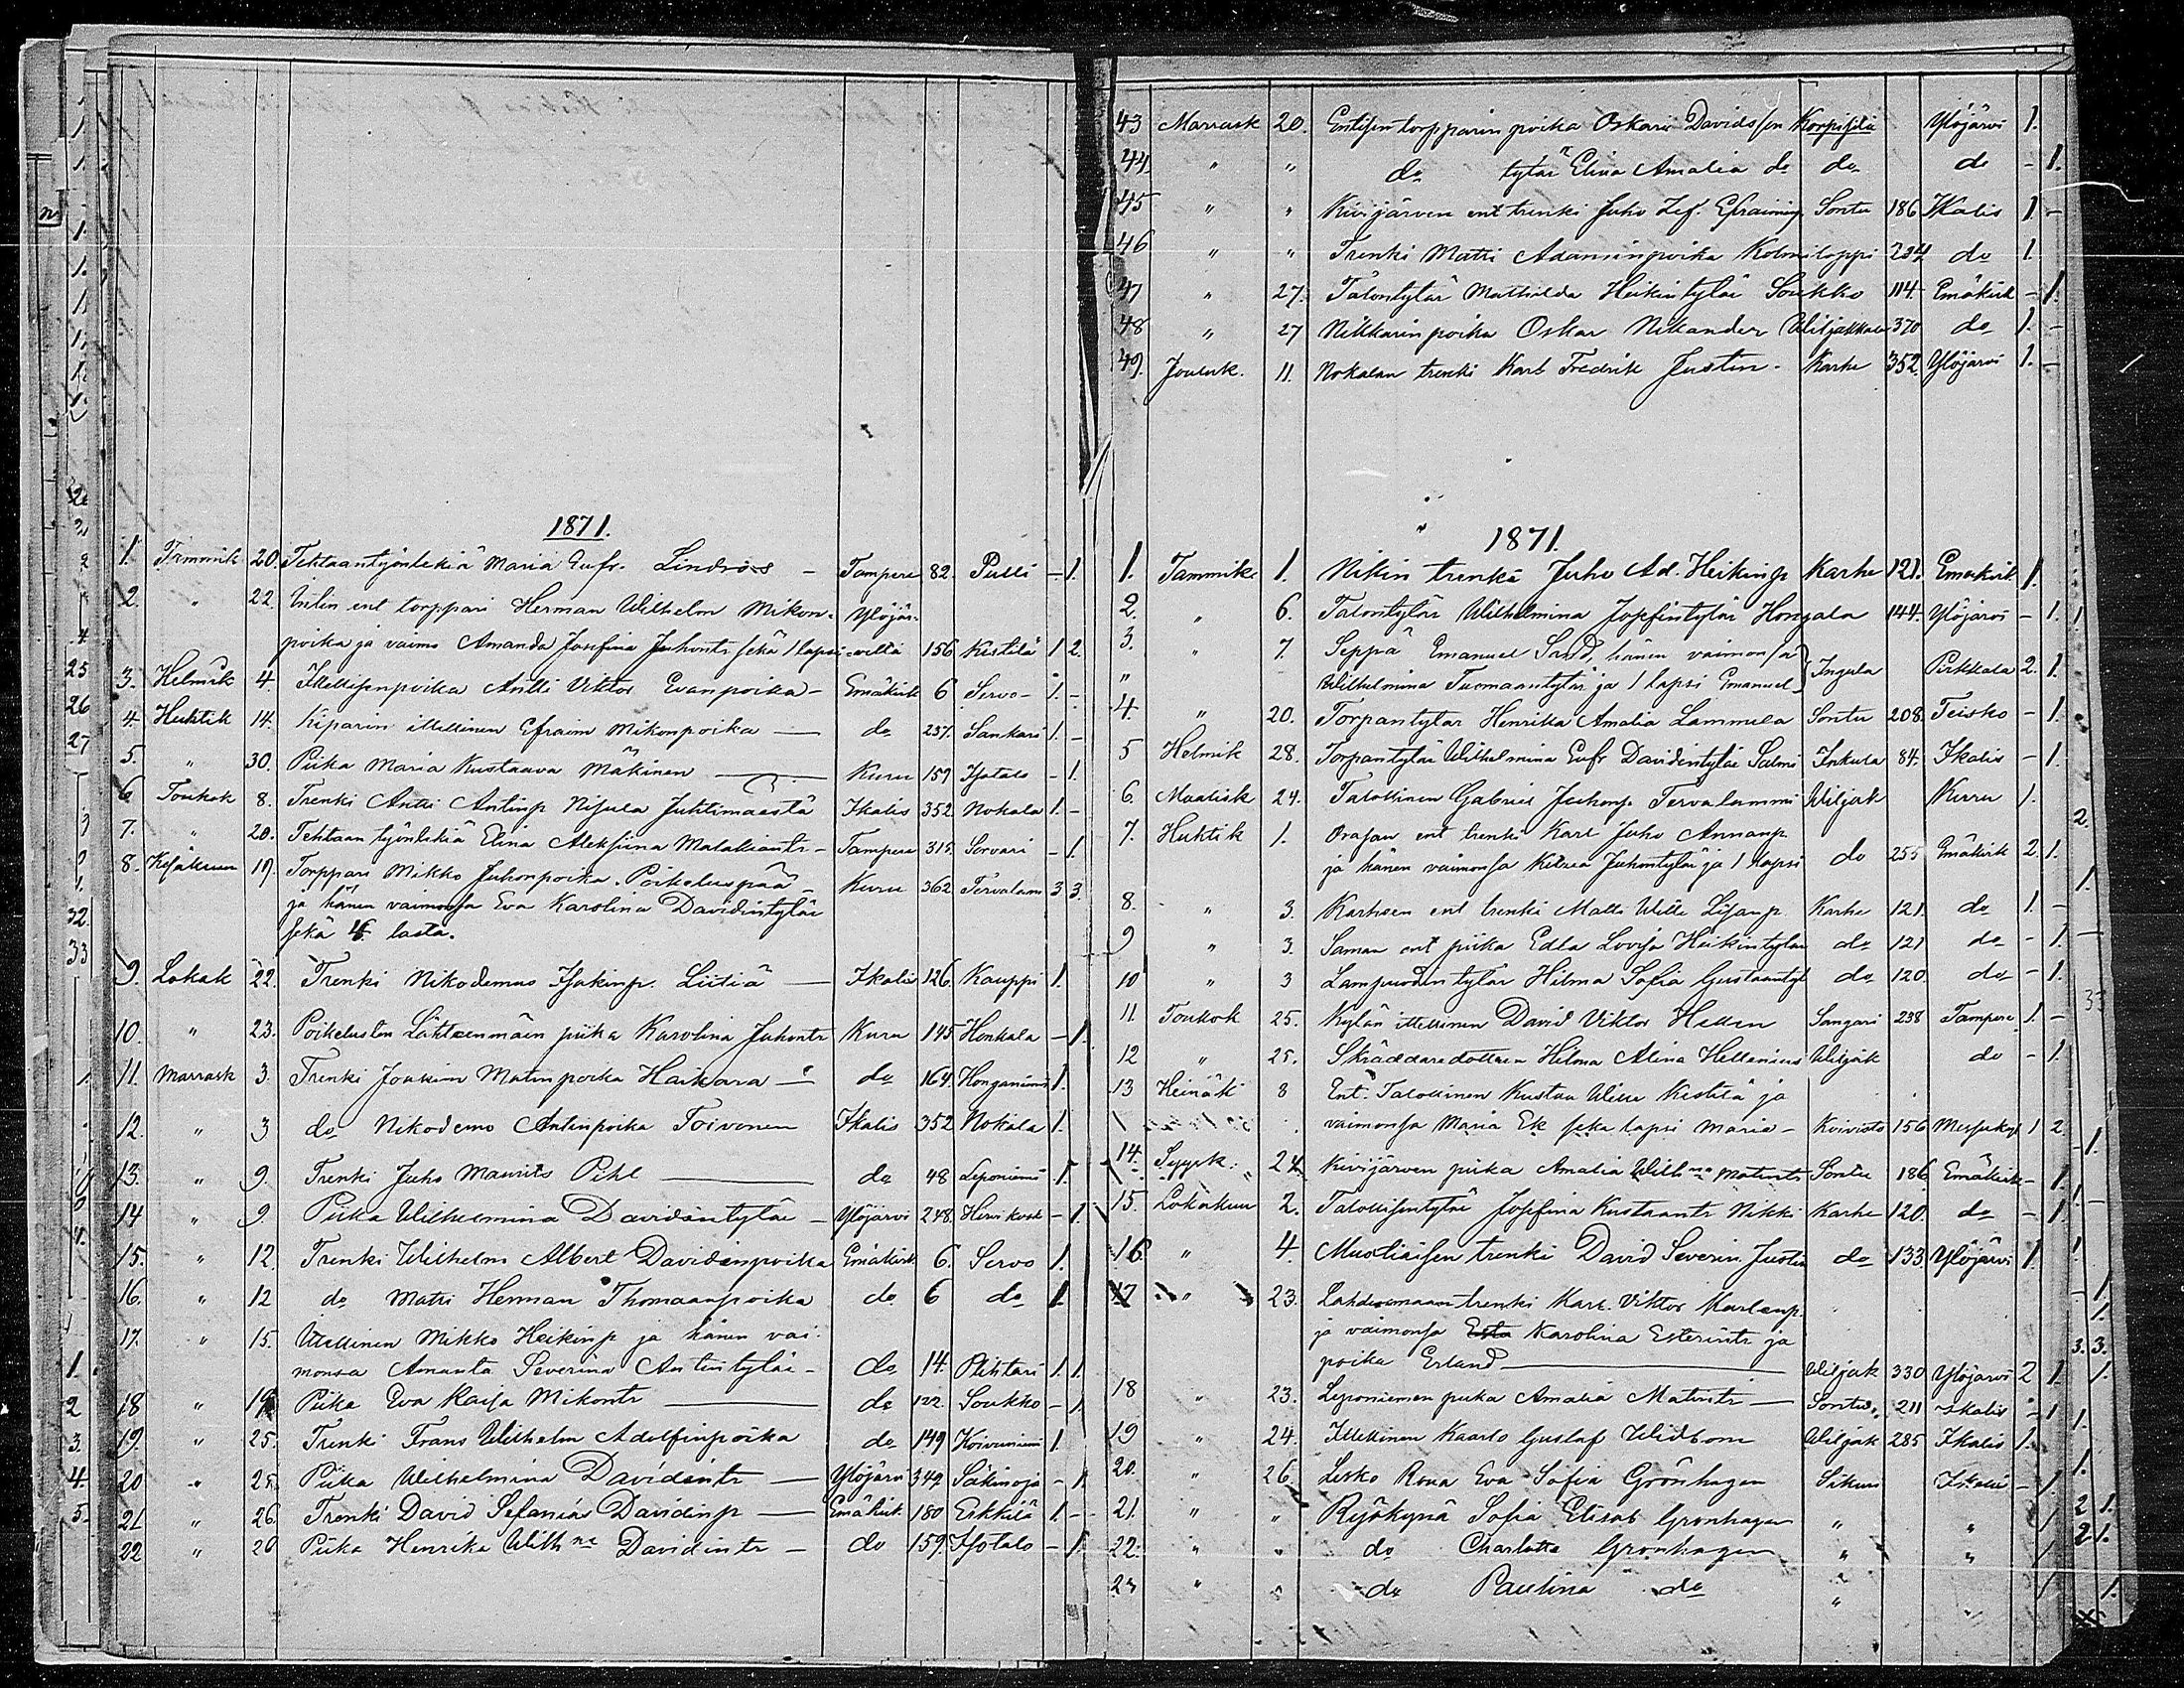 1871.
1. Tammik 20. Tehtaantyöntekiä Maria Eufr. Lindroos - Tampere 82. Pulli - 1.
2. " 22. ent torppari Herman Wilhelm Mikon- Ylöjär-
poika ja vaimo Amanda Josefina Juhontr sekä 1 lapsi -veltä 156 Kistilä 1 2.
3. Helmik 4. Itellisenpoika Antti Viktor Evanpoika - Emäkirk 6 Servo - 1. -
4. Huhtik 14. Kiparin itellinen Efraim Mikonpoika — do 237. Sankari 1. -
5. " 30. Piika Maria Kustaava Mäkinen — Kuru 159 Isotalo - 1.
6 Toukok 8. Trenki Antti Antinp Nisula Juhtimäestä Ikalis 352 Nokala 1. -
7. " 20. Tehtaan työntekiä Elina Aleksina Malakiantr - Tampere 315. Sorvari - 1.
8. Kesäkuun 19. Torppari Mikko Juhonpoika Poikeluspää - Kuru 362 Tervalam 3 3.
ja hänen vaimonsa Eva Karolina Davidintytär
sekä 4 lasta.
9. Lokak 22. Trenki Nikodemus Isakinp. Liitiä — Ikalis 126. Kauppi 1.
10. " 23. Poikeluslm Lähteenmäen piika Karolina Juhontr Kuru 145 Honkala - 1.
11. Marrask 3. Trenki Joakim Matinpoika Haikara — do 164. Honganiemi 1.
12. " 3 do Nikodemo Antinpoika Toivonen Ikalis 352 Nokala 1.
13. " 9. Trenki Juho Maurits Pihl — do 48 Leponiemi 1.
14 " 9. Piika Wilhelmina Davidintytär - Ylöjärvi 248. Hirvikosk - 1.
15. " 12. Trenki Wilhelm Albert Davidinpoika Emäkirk. 6. Servo 1.
16. " 12 do Matti Herman Thomaanpoika do 6 do 1.
17. " 15. Itellinen Mikko Heikinp ja hänen vai-
monsa Amanta Severina Antintytär - do 14. Pihtari 1. 1.
18 " 19 Piika Eva Kaisa Mikontr — do 122. Soukko - 1.
19. " 25. Trenki Frans Wilhelm Adolfinpoika do 149 Koivuniemi 1.
20 " 25. Piika Wilhelmina Davidintr — Ylöjärvi 349. Säkinoja - 1.
21 " 26. Trenki David Sefanias Davidinp — Emäkirk. 180 Erkkilä 1. -
22 " 20 Piika Henrika Wilhna Davidintr — do 159. Isotalo - 1.
43 Marrask 20. Entisen torpparin poika Oskari Davidssen Korpisilä Ylöjärvi 1.
44. " " do tytär Elina Amalia do do do - 1.
45 " " Kivijärven ent trenki Juho Zef. Efraiminp Sontu 186 Ikalis 1 -
46 " " Trenki Matti Adaminpoika Kolmiloppi 234 do 1.
47 " 27. Talontytär Mathilda Heikintytär Soukko 114. Emäkirk - 1.
48 " 27 Nikkarin poika Oskar Nikander Wiljakkala 370 do 1. -
49. Jouluk. 11. Nokalan trenki Karl Fredrik Justin - Karhe 352. Ylöjärvi 1. -
1871.
1. Tammik. 1. Nikin trenki Juho Ad. Heikinp Karhe 121. Emäkirk 1.
2. " 6. Talontytär Wilhelmina Josefintytär Hongala 144. Ylöjärvi - 1.
3. " 7. Seppä Emanuel Sand, hänen vaimonsa
" Wilhelmina Tuomaantytär ja 1 lapsi Emanuel Ingula Pirkkala 2. 1.
4. " 20. Torpantytar Henrika Amalia Lammila Sontu 208. Teisko - 1.
5 Helmik 28. Torpantytär Wilhelmina Eufr Davidintytär Salmi Inkula 84. Ikalis - 1.
6. Maalisk 24. Talollinen Gabriel Juhonp. Tervalammi Wiljak Kuru 1.
7. Huhtik 1. ent trenki Karl Juho Annanp
ja hänen vaimonsa Juhontytär ja 1 lapsi do 255 Emäkirk 2. 1.
8. " 3. Karhsen ent trenki Matti Wille Lisanp Karhe 121. do 1. -
9 " 3. Saman ent piika Edla Lovisa Heikintytär do 121 do - 1.
10 " 3 Lampuodin tytär Hilma Sofia Gustaantyt do 120. do - 1.
11 Toukok 25. Kylän itellinen David Viktor Hellen Sangari 238 Tampere 1. -
12 " 25. Skräddaredottren Hilma Alina Hellenius Wiljak do - 1.
13 Heinäk 8 Ent. Talollinen Kustaa Wille Kistilä ja
vaimonsa Maria Ek seka lapsi Maria - Koivisto 156 1 2.
14. Syysk. 24. Kivijärven piika Amalia Wilhna Matintr Sontu 186 Emäkirk - 1.
15. Lokakuu 2. Talollisentytär Josefina Kustaantr Nikki Karhe 120. do - 1.
16. " 4. Muotiaisen trenki David Severin Justin do 133. Ylöjärvi 1.
17 " 23. trenki Karl Viktor Karlanp.
ja vaimonsa Esta Karolina Esterintr ja
poika Erland — Wiljak 330 Ylöjärvi 2 1.
18 " 23. Leponiemen piika Amalia Matintr — Sontu 211 Ikalis - 1
19 " 24. Itellinen Kaarlo Gustaf Widbom Wiljak 285 Ikalis 1.
20. " 26. Lesko Rova Eva Sofia Grönhagen Sikuri Ikalis - 1
21. " " Ryökynä Sofia Elisab Grönhagen " " 1
22. " " do Charlotta Grönhagen " " 1
23 " " do Paulina do " " 1